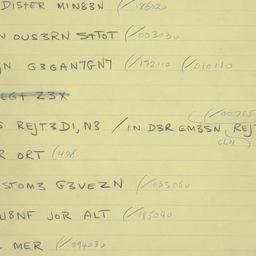 DISTER MIN83N (/186020
N OUS3RN STTOT (/003030
N G3GAN7GN7 (/172110 (/010110
(/00705
S REJT3D1,N3 /IN D3R GM3SN, REJ
R ORT (498
STOM3 G3VEZN (/033060
U8NF JOR ALT (/185040
L MER (/094030